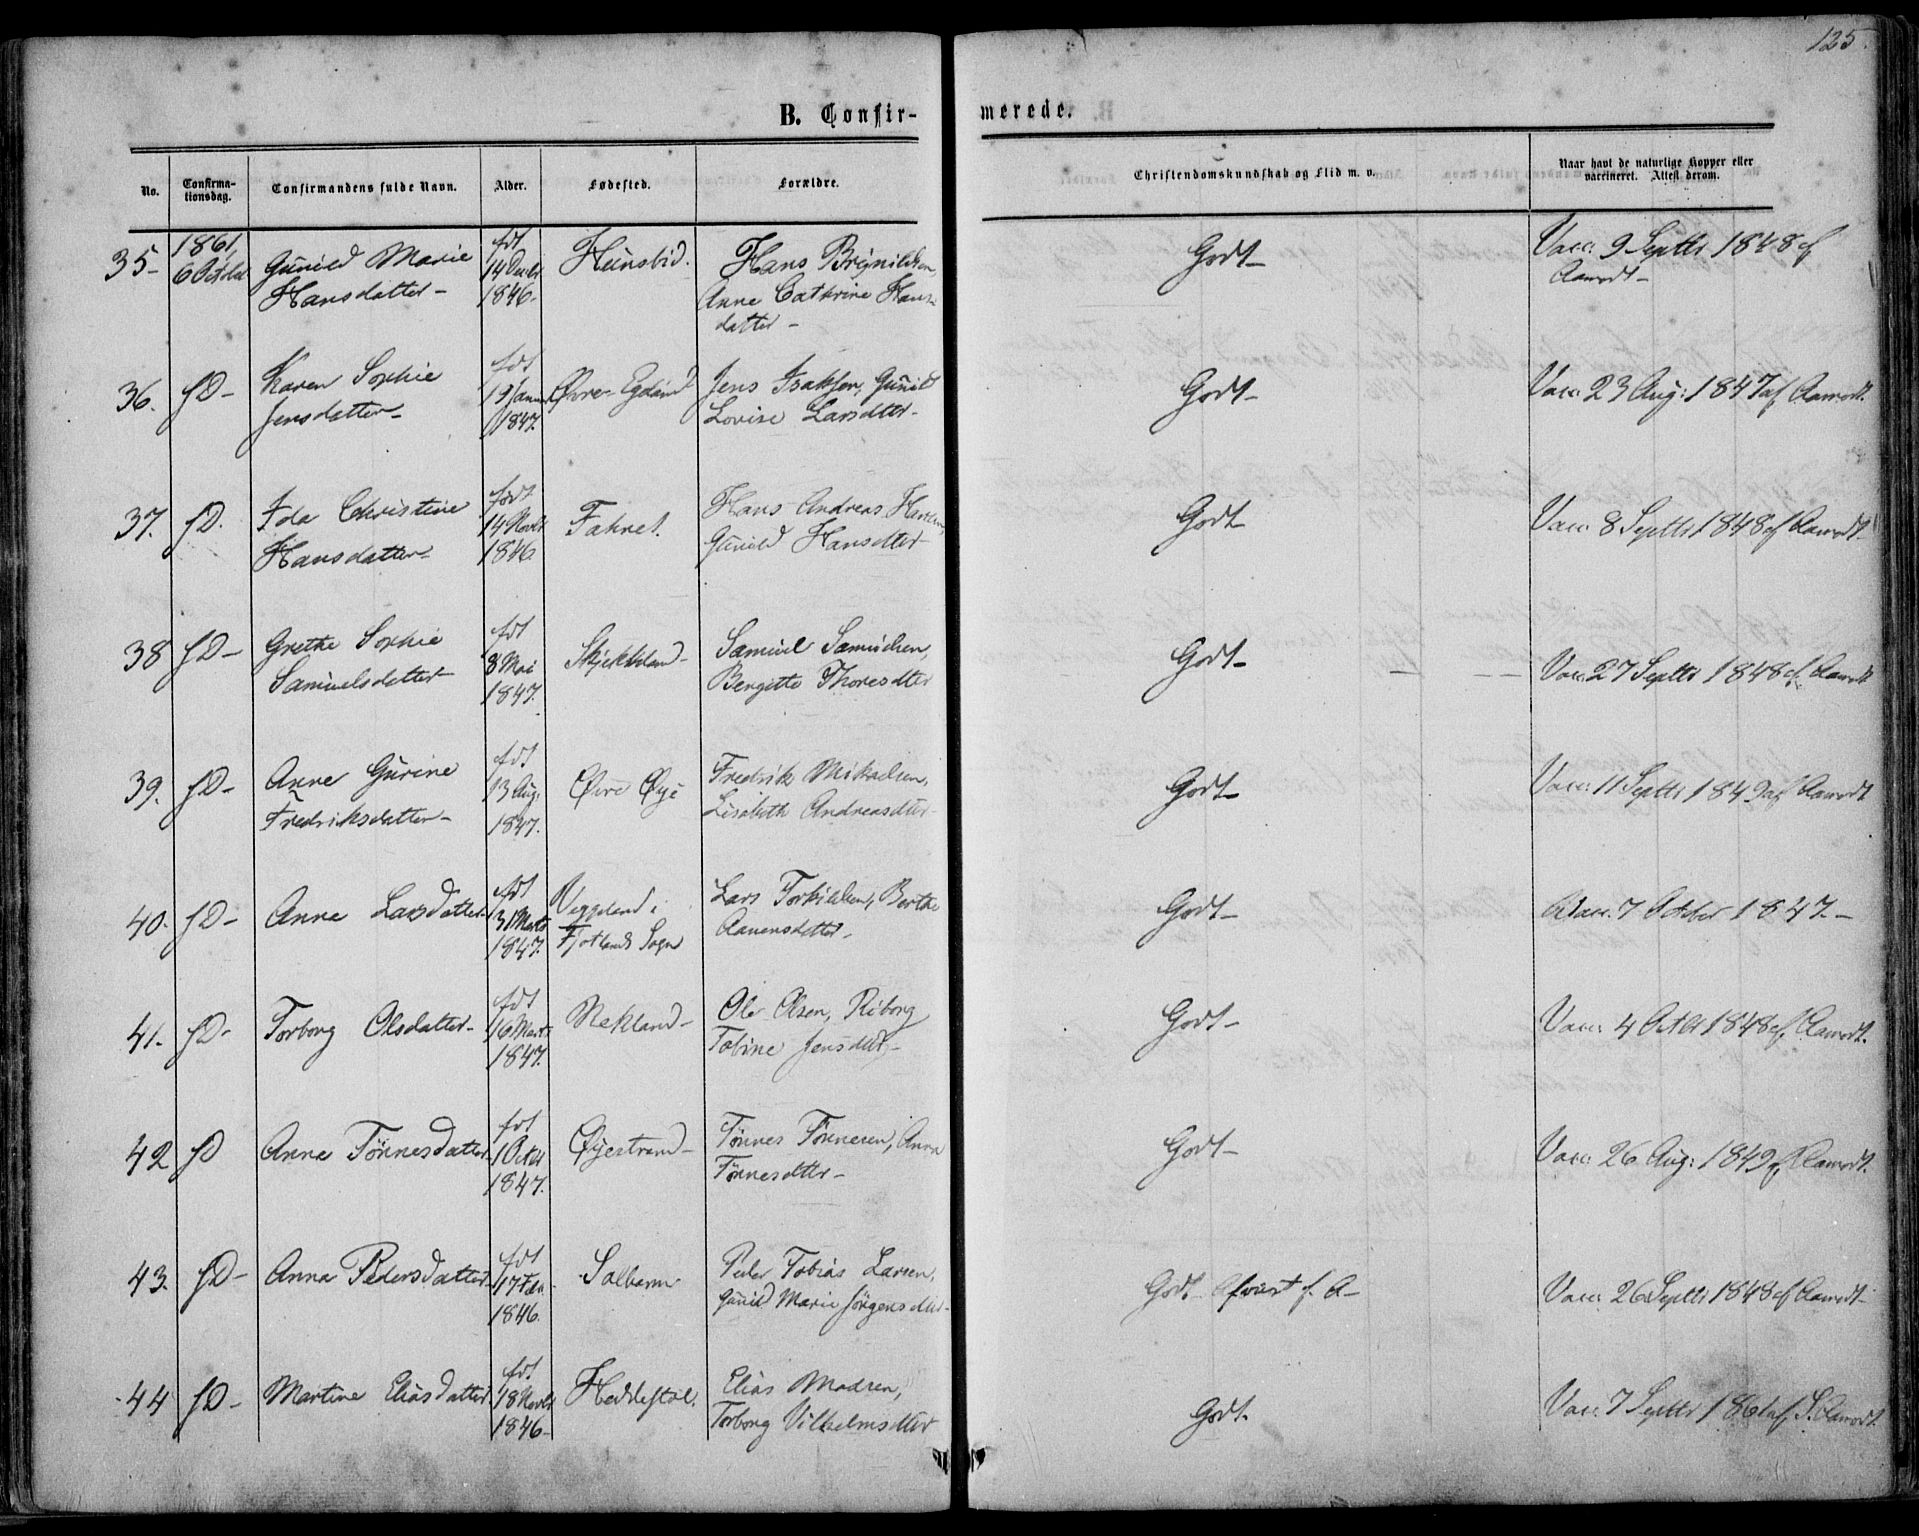 125.
B. Confirmerede.
No. Confirmationsdag. Confirmandens fulde Navn. Alder. Fødested. Forældre. Christendomskundskab og Flid m. v. Naar havt de naturlige Kopper eller vaccineret. Attest derom.
35- 1861, 6 Octbr Gunild Marie Hansdatter- fdt 14 Decbr 1846- Hunsbid. Hans Brynildsen, Anne Cathrine Hansdatter- Godt- Vacc: 9 Septbr 1848 af Aamodt-
36. fD- Karen Sophie Jensdatter- fdt 19 Januar 1847. Øvre-Egdand Jens Isaksen, Gunild Lovise Larsdtter- Godt- Vacc: 23 Aug: 1847 af Aamodt.
37. fD. Ida Christine Hansdatter- født 14 Novbr 1846 Fahret. Hans Andreas Gunild Hansdtter- Godt- Vacc: 8 Septbr 1848 af Aamodt-
38 fD- Grethe Sophie Samuelsdatter- fdt 8 Mai 1847. Samuel Samuelsen, Bengitte Thoresdtter Godt- Vacc: 27 Septbr 1848 af Aamodt
39. fD- Anne Gurine Fredriksdatter- fdt 13 Aug: 1847. Øvre Øye Fredrik Mikaelsen, Lisabeth Andreasdtter- Godt- Vacc: 11 Septbr 1849 af Aamodt
40. fD- Anne Larsdatter- fdt 31 Marts 1847. Veggeland i Fjotlands Sogn Lars Torkildsen, Berthe Aanensdatter- Godt- Vacc: 7 October 1847.-
41. fD- Torborg Olsdatter- fdt 16 Marts 1847. Nekland- Ole Olsen, Riborg Tobine Jensdtter- Godt- Vacc: 4 Octbr 1848 af Aamodt.
42 fD Anne Tønnesdatter- fdt 1 Octbr 1847. Øyestrand- Tønnes Tønnesen, Anna Tønnesdtter- Godt- Vacc: 26 Aug: 1849 af Aamodt.
43. fD- Anna Pedersdatter- fdt 17 Febr 1846. Peder Tobias Larsen, Gunild Marie Jørgensdtter- Godt- Afviist f. A- Vacc: 26 Septbr 1848 af Aamodt-
44 fD- Martine Eliasdatter fdt 18 Novbr 1846- Heddestøl. Elias Madsen, Torborg Vilhelmsdtter Godt. Vacc: 7 Septbr 1861 af S. Aamodt.